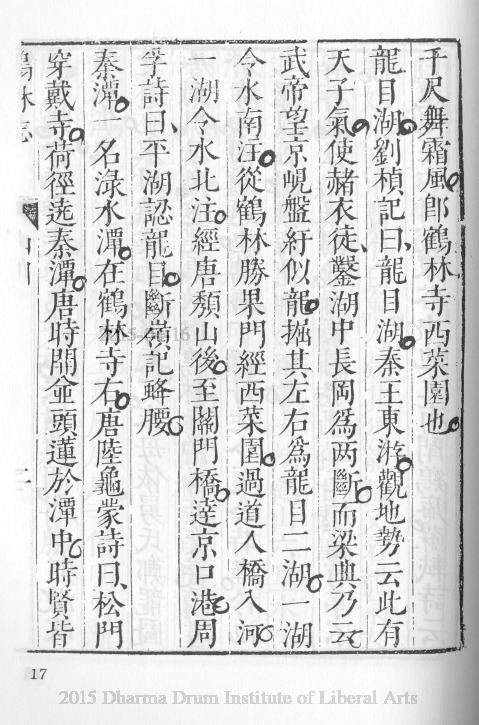 千尺舞霜風卽鶴林寺西菜園也
龍目湖劉楨記曰龍目湖秦王東游觀地勢云此有
天子氣使赭衣徒鑿湖中長岡爲两斷而梁典乃云
武帝望京峴盤紆似龍掘其左右爲龍目二湖一湖
令水南注從鶴林勝果門經西菜園過道人橋入河
一湖令水北注經唐頹山後至閘門橋達京口港周
孚詩曰平湖認龍目斷嶺記蜂腰
秦潭一名淥水潭在鶴林寺右唐陸龜蒙詩曰松門
穿戴寺荷徑遶秦潭唐時開並頭蓮於潭中時賢皆
鶴林志
山川
二
17
2015 Dharma Drum Institute of Liberal Arts